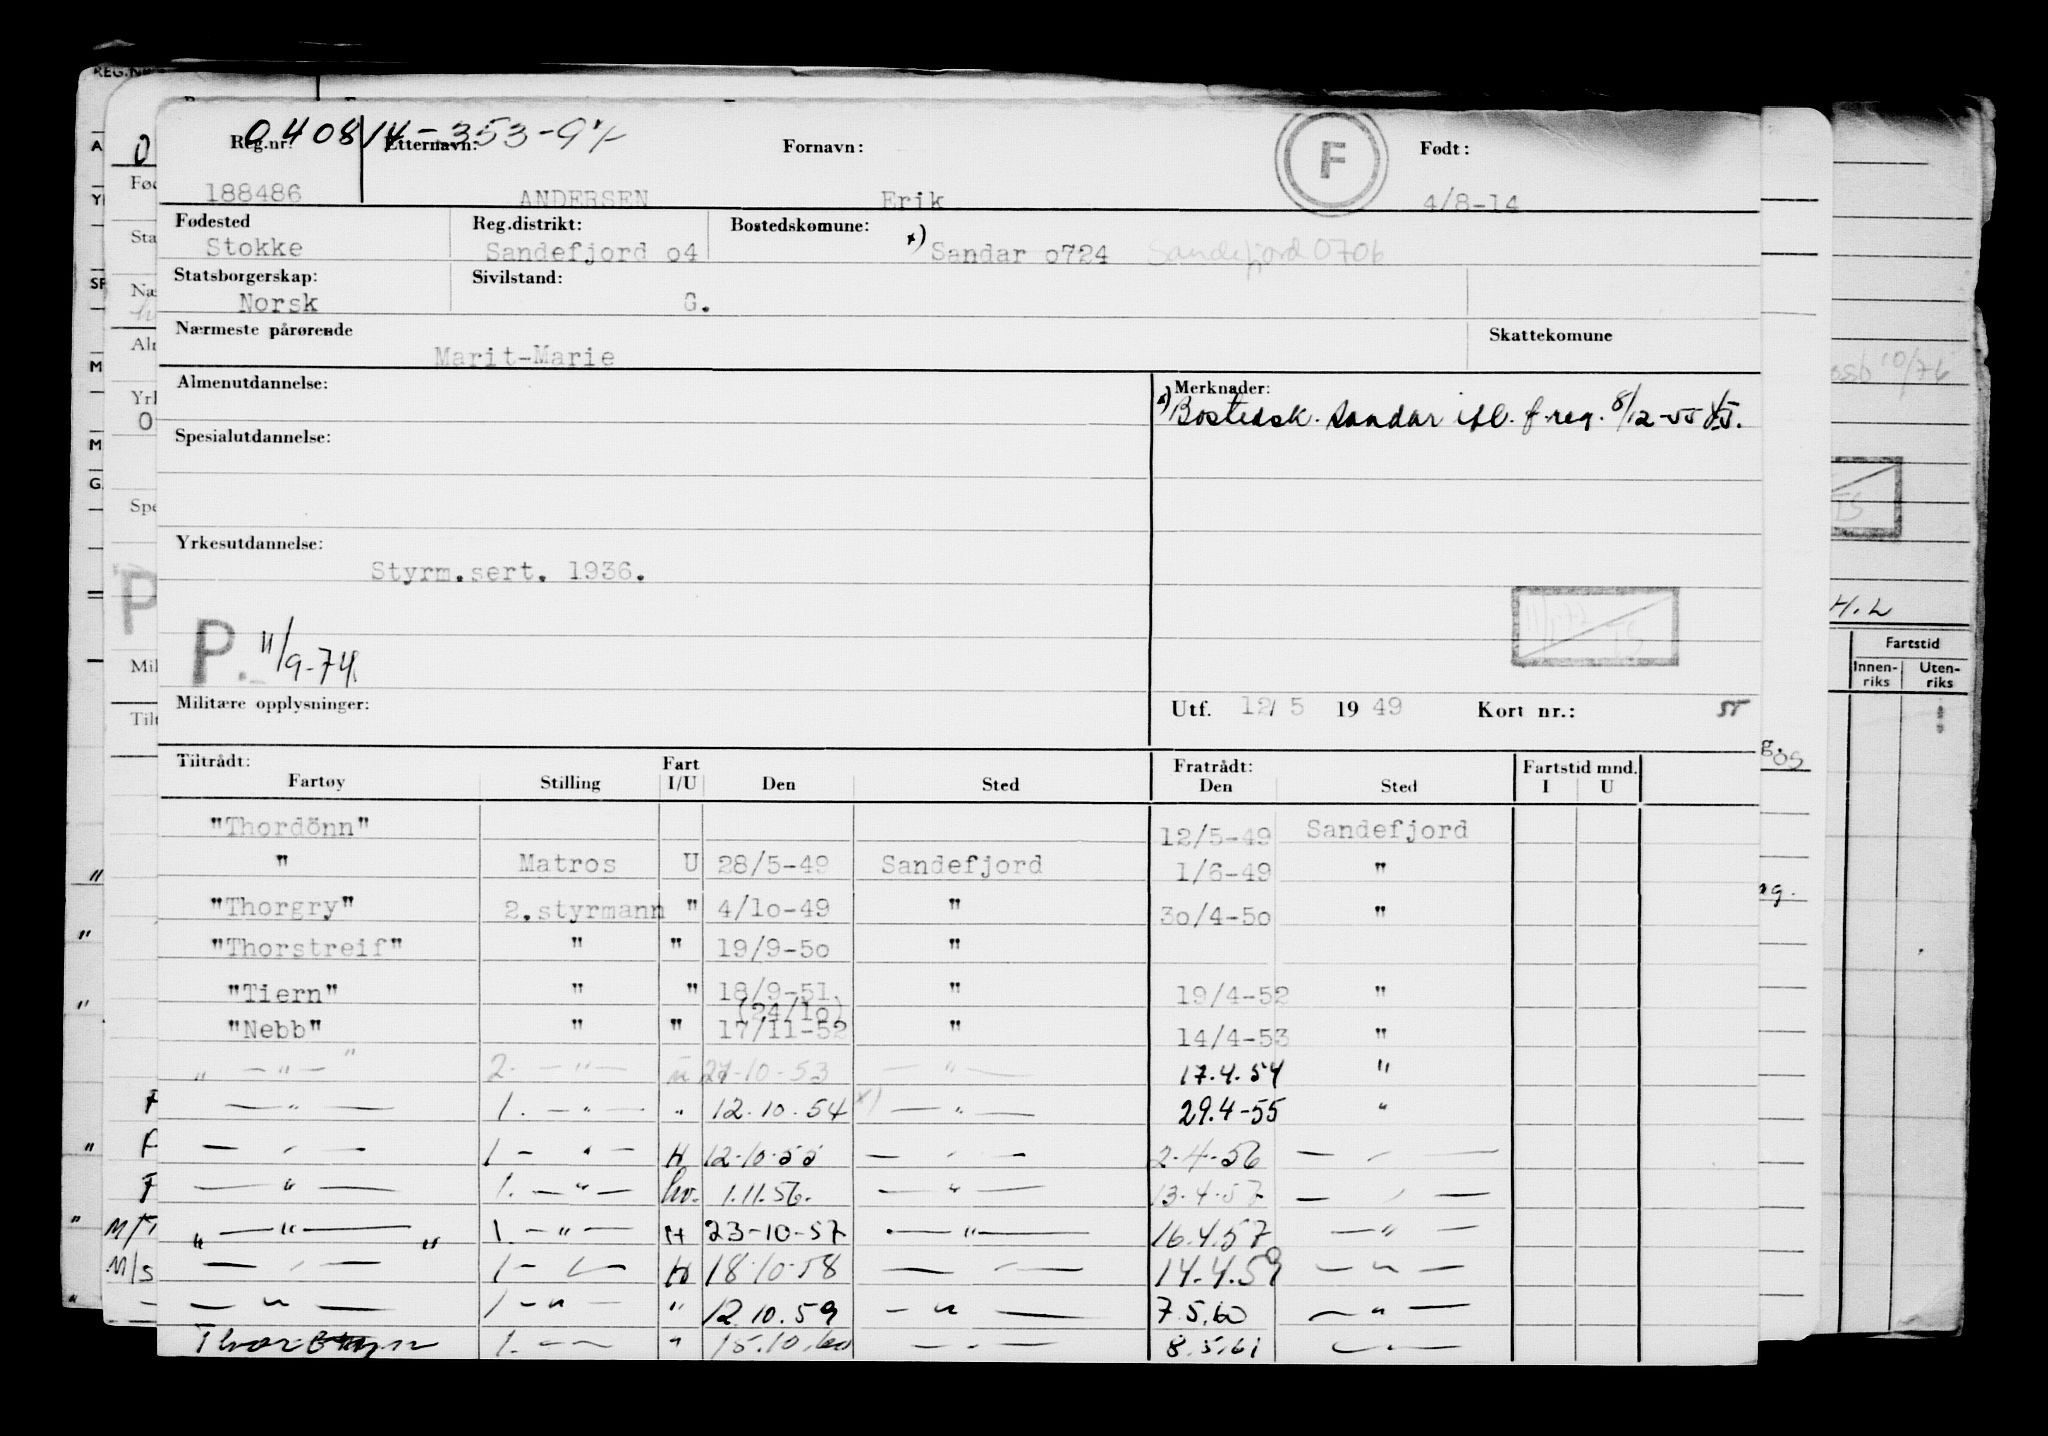 040814-353-97
Reg.nr: Etternavn: Fornavn: F Født:
188486 ANDERSEN Erik 4/8-14
Fødested Reg.distrikt: Bostedskomune:
Stokke Sandefjord o4 x) Sandar o724 Sandefjord 0706
Statsborgerskap: Sivilstand:
Norsk G.
Nærmeste pårørende Skattekomune
Marit-Marie
Almenutdannelse: Merknader:
x) Bostedsk. Sandar ifl. f.reg. 8/12-55
Spesialutdannelse:
Yrkesutdannelse:
Styrm.sert. 1936.
P. 11/9-74
Militære opplysninger: Utf. 12/ 5 19 49 Kort nr.:
Tiltrådt: Fart Fratrådt: Fartstid mnd.
Fartøy Stilling I/U Den Sted Den Sted I U
"Thordönn" 12/5-49 Sandefjord
" Matros U 28/5-49 Sandefjord 1/6-49 "
"Thorgry" 2.styrmann " 4/1o-49 " 3o/4-5o "
"Thorstreif" " " 19/9-5o "
"Tiern" " " 18/9-51 " 19/4-52 "
(24/1o)
"Nebb" " " 17/11-52 " 14/4-53 "
" — " — " 2. — " — u 27-10-53 — " — 17.4.54 "
— " — 1. — " — " 12.10.54 x) — " — 29.4-55 "
— " — 1 — " — H 12-10-55 — " — 2-4-56 — " —
— " — 1. — " — hv. 1.11.56. — " — 13-4-57 — " —
" — " — " 1. — " — H 23-10-57 — " — 16.4.57 — " —
— " — 1 — " — H 18-10-58 — " — 14.4.59 — " —
— " — 1 — " — " 12.10.59 — " — 7.5.60 — " —
1. — " — " 15.10.60 — " — 8.5.61 — " —
H.L
Fartstid
Innen-riks Uten-riks
M/T
M/S